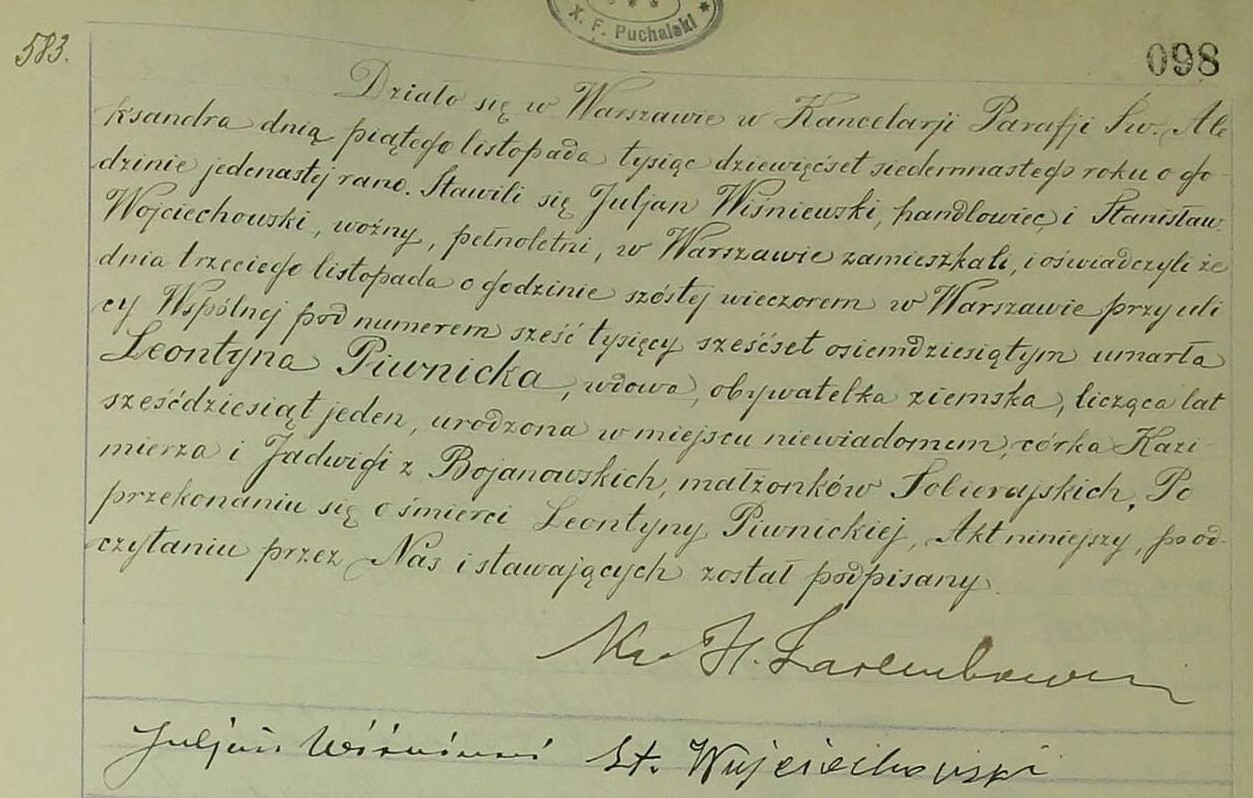 X. F. Puchalski
583.
098
Działo się w Warszawie w Kancelarji Parafji Św. Ale
ksandra dnia piątego listopada tysiąc dziewięćset siedemnastego roku o go-
dzinie jedenastej rano. Stawili się Juljan Wiśniewski, handlowiec i Stanisław
Wojciechowski, woźny, pełnoletni, w Warszawie zamieszkali, i oświadczyli że
dnia trzeciego listopada o godzinie szóstej wieczorem w Warszawie przy uli
cy Wspólnej pod numerem sześć tysięcy sześćset osiemdziesiątym umarła
Leontyna Piwnicka, wdowa, obywatelka ziemska, licząca lat
sześćdziesiąt jeden, urodzona w miejscu niewiadomem, córka Kazi-
mierza i Jadwigi z Bojanowskich, małżonków Sobierajskich. Po
przekonaniu się o śmierci Leontyny Piwnickiej, Akt niniejszy, po od-
czytaniu przez Nas i stawających został podpisany.
H.
Juljan Wiśniewski St. Wojciechowski